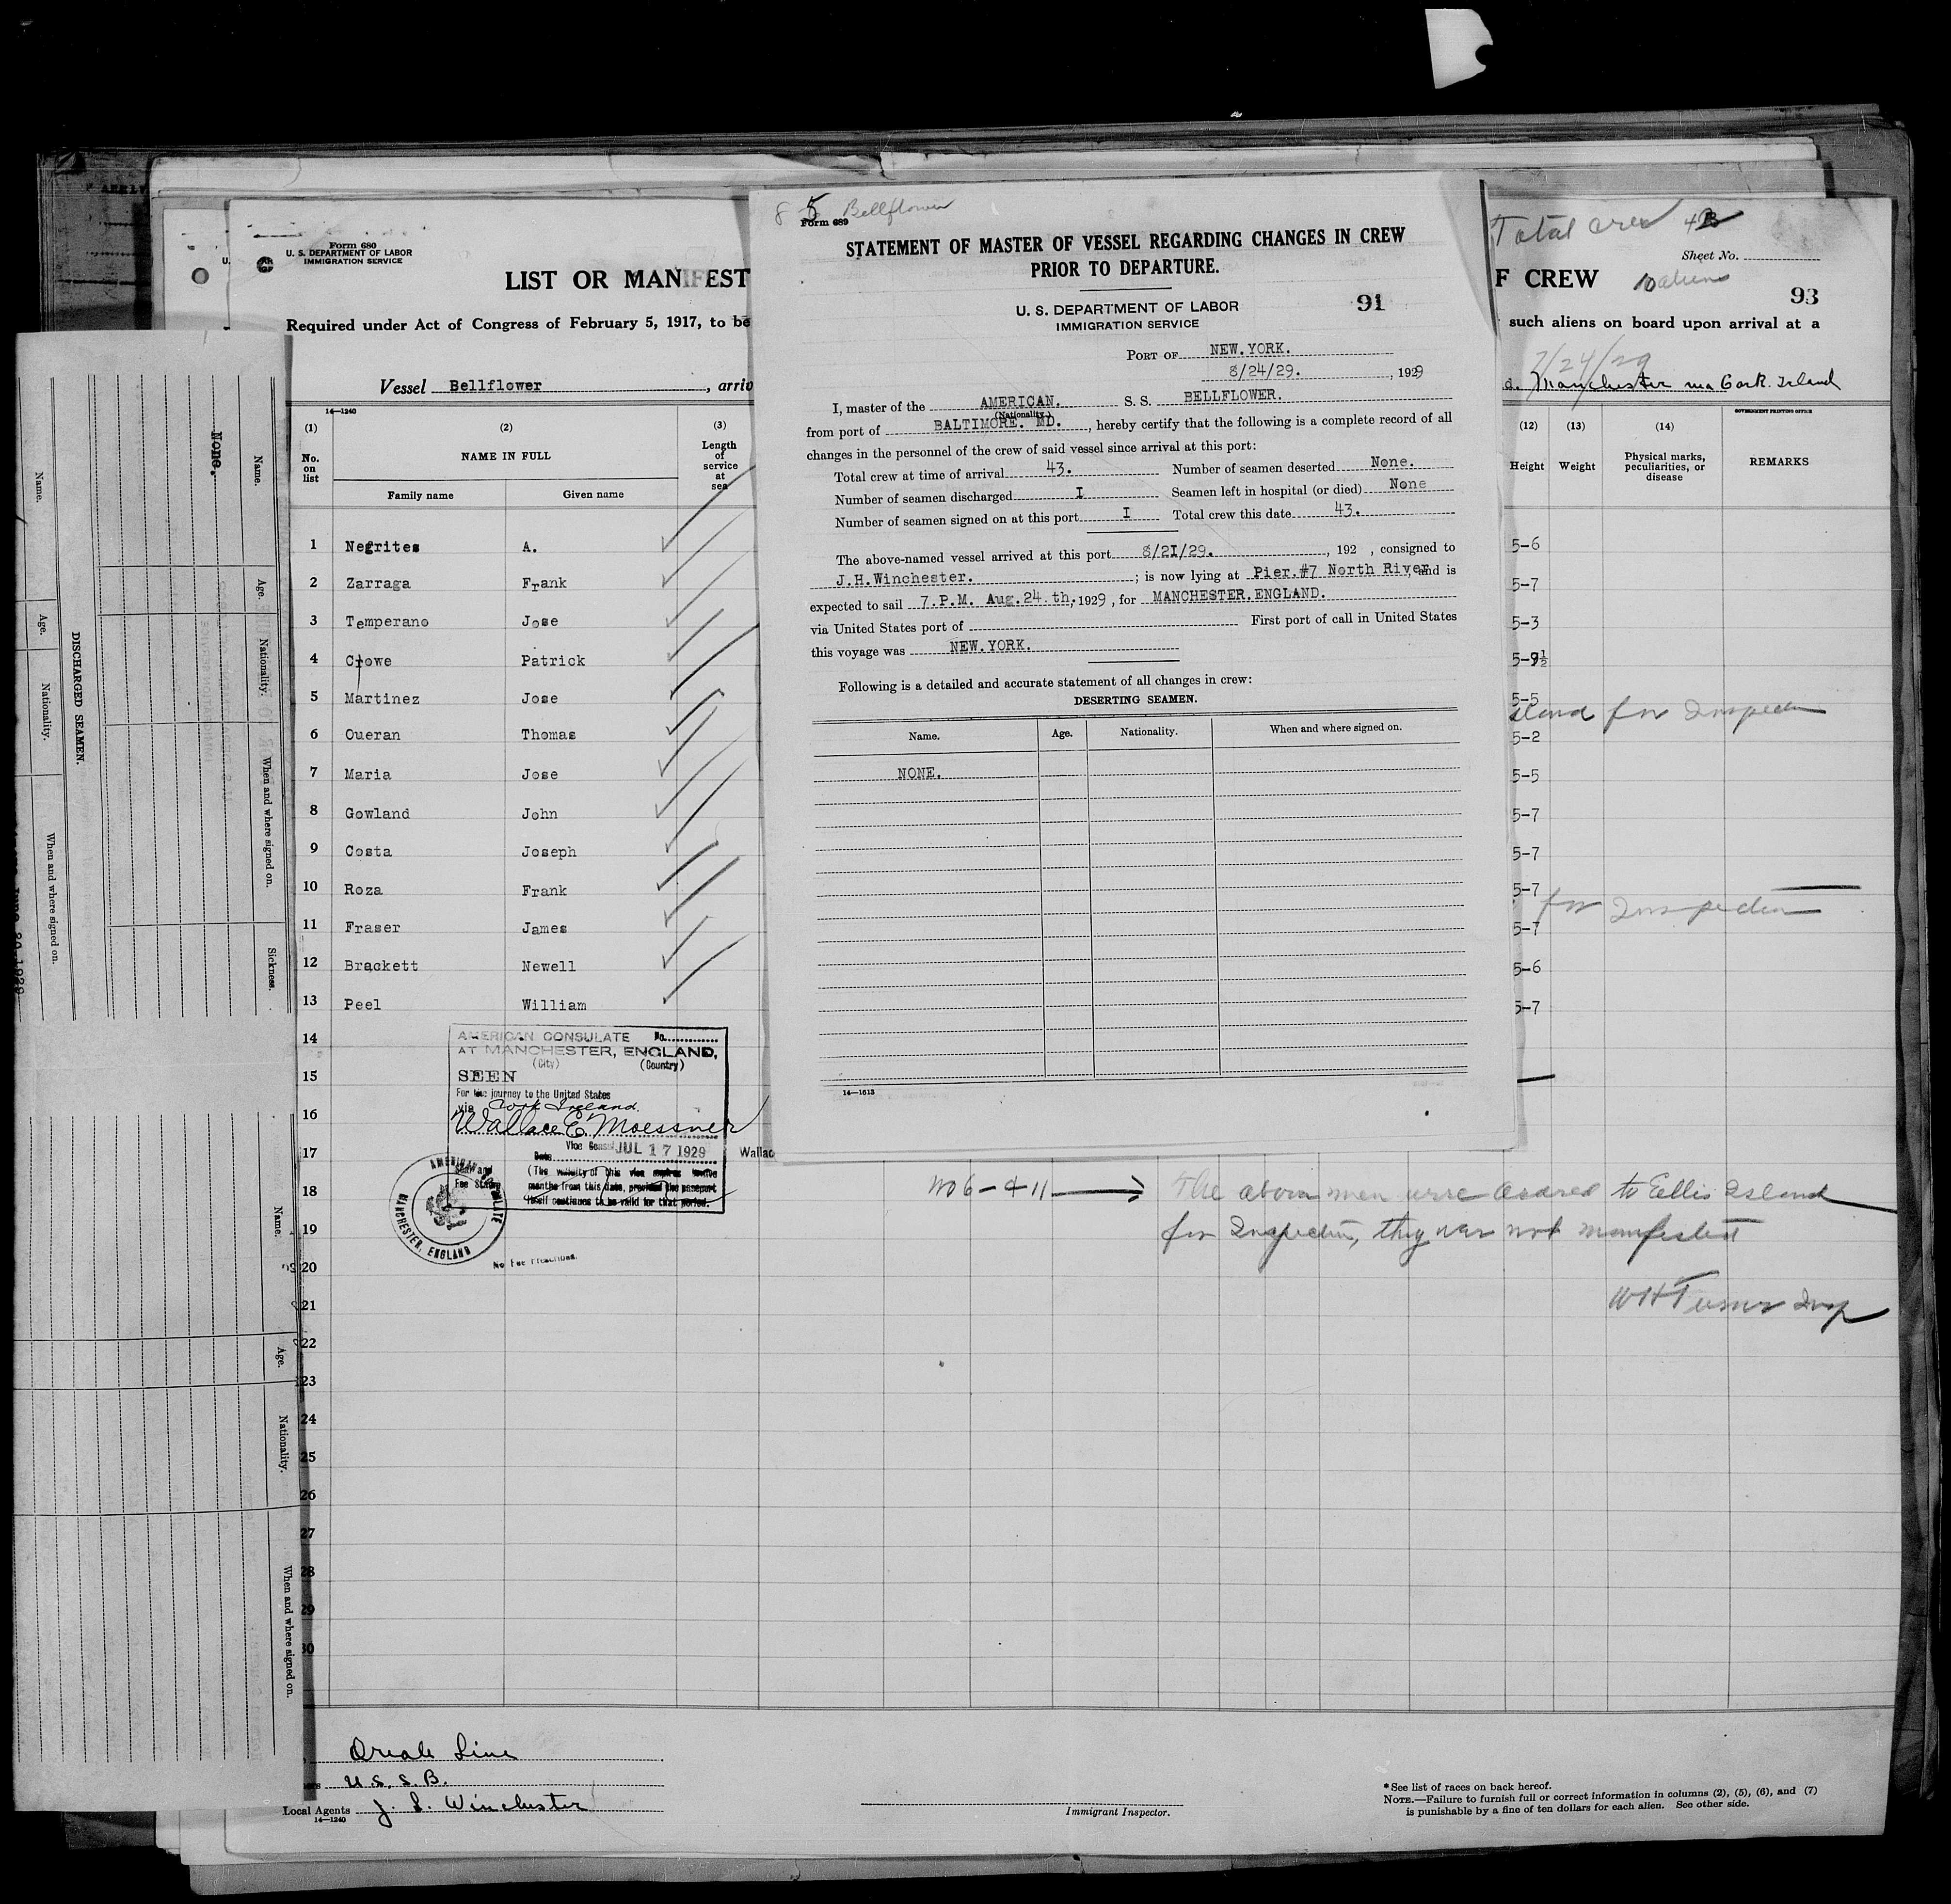 Form 680
U. S. DEPARTMENT OF LABOR
IMMIGRATION SERVICE
LIST OR MANIFEST
Required under Act of Congress of February 5, 1917, to be
Vessel Bellflower, arriv
14—1240
(1) (2) (3)
No. on list
NAME IN FULL
Length of service at sea
Family name Given name
1 Negrites A.
2 Zarraga Frank
3 Temperano Jose
4 Crowe Patrick
5 Martinez Jose
6 Oueran Thomas
7 Maria Jose
8 Gowland John
9 Costa Joseph
10 Roza Frank
11 Fraser James
12 Brackett Newell
13 Peel William
14
15
16
17
18
19
20
21
22
23
24
25
26
27
28
29
30
AMERICAN CONSULATE No.
AT MANCHESTER, ENGLAND,
(City) (Country)
SEEN
For the journey to the United States
via Cork Ireland.
Wallace E. Moessner
Vice Consul
Date JUL 17 1929
(The validity of this visa expires twelve
months from this date, provided the passport
itself continues to be valid for that period.
Seal and
Fee Stamp
AMERICAN CONSULATE
MANCHESTER, ENGLAND
No Fee Prescribed.
Wallac
8 5 Bellflower
Form 689
STATEMENT OF MASTER OF VESSEL REGARDING CHANGES IN CREW
PRIOR TO DEPARTURE.
U. S. DEPARTMENT OF LABOR
IMMIGRATION SERVICE
91
PORT OF NEW.YORK.
8/24/29. , 1929
I, master of the AMERICAN. S. S. BELLFLOWER.
(Nationality.)
from port of BALTIMORE. MD., hereby certify that the following is a complete record of all
changes in the personnel of the crew of said vessel since arrival at this port:
Total crew at time of arrival 43. Number of seamen deserted None.
Number of seamen discharged I Seamen left in hospital (or died) None
Number of seamen signed on at this port I Total crew this date 43.
The above-named vessel arrived at this port 8/2I/29. , 192 , consigned to
J.H.Winchester. ; is now lying at Pier.#7 North River, and is
expected to sail 7.P.M. Aug.24.th, 1929, for MANCHESTER.ENGLAND.
via United States port of First port of call in United States
this voyage was NEW.YORK.
Following is a detailed and accurate statement of all changes in crew:
DESERTING SEAMEN.
Name. Age. Nationality. When and where signed on.
NONE.
14—1613
Total crew 43
Sheet No.
F CREW 10 aliens
93
such aliens on board upon arrival at a
7/24/29
d. Manchester via Cork. Ireland
GOVERNMENT PRINTING OFFICE
(12) (13) (14)
Height Weight Physical marks, peculiarities, or disease REMARKS
5-6
5-7
5-3
5-9½
5-5
sland for Inspection
5-2
5-5
5-7
5-7
5-7
for Inspection
5-7
5-6
5-7
No 6 - & 11 → The above men were ordered to Ellis Island
for Inspection, they was not manifested
WH Turner Insp
Oriole Line
U. S. S. B.
Local Agents
14—1240
Immigrant Inspector.
*See list of races on back hereof.
NOTE.—Failure to furnish full or correct information in columns (2), (5), (6), and (7)
is punishable by a fine of ten dollars for each alien. See other side.
None.
Name. Age. Nationality. When and where signed on. Sickness.
DISCHARGED SEAMEN.
Name. Age. Nationality. When and where signed on.
Name. Age. Nationality. When and where signed on.